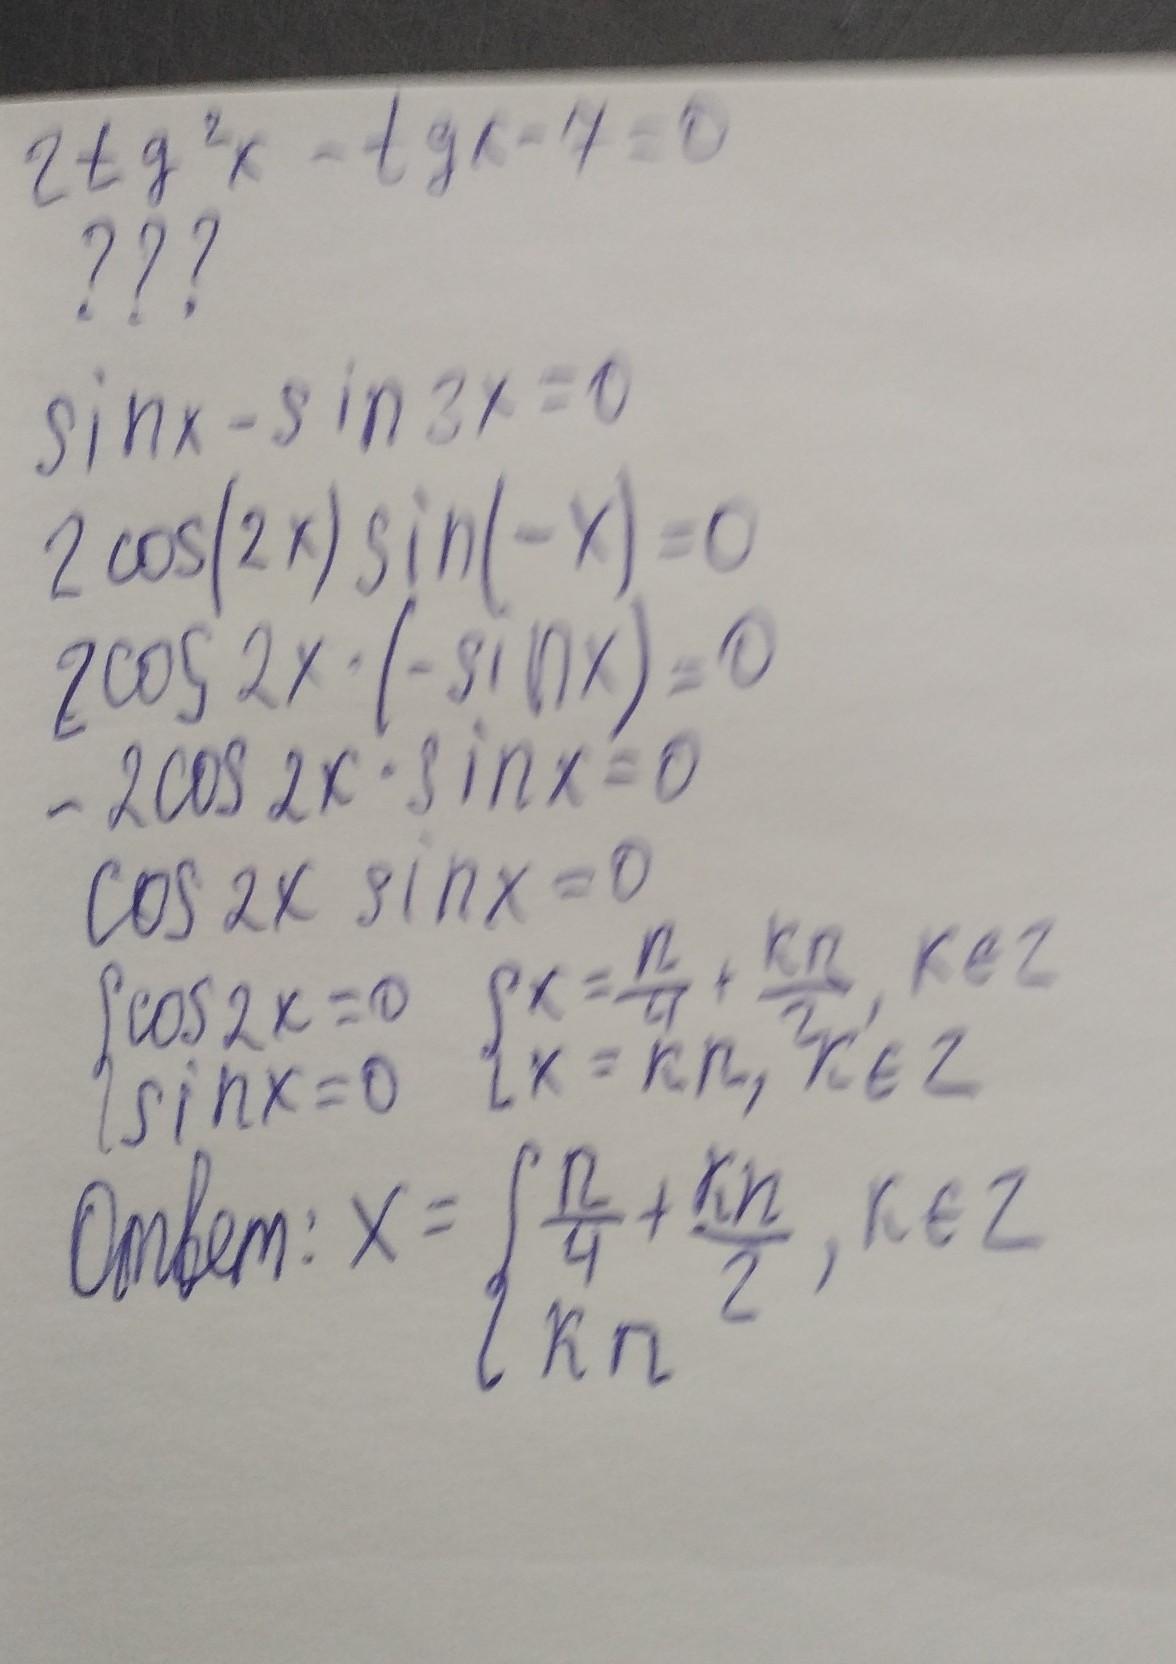 2tg²x - tgx - 7 = 0
???
sinx - sin3x = 0
2cos(2x) sin(-x) = 0
2cos2x · (-sinx) = 0
- 2cos2x · sinx = 0
cos2x sinx = 0
{cos2x = 0 {x = π/4 + kπ/2, k∈Z
{sinx = 0 {x = kπ, k∈Z
Ответ: x = {π/4 + kπ/2, k∈Z
{kπ